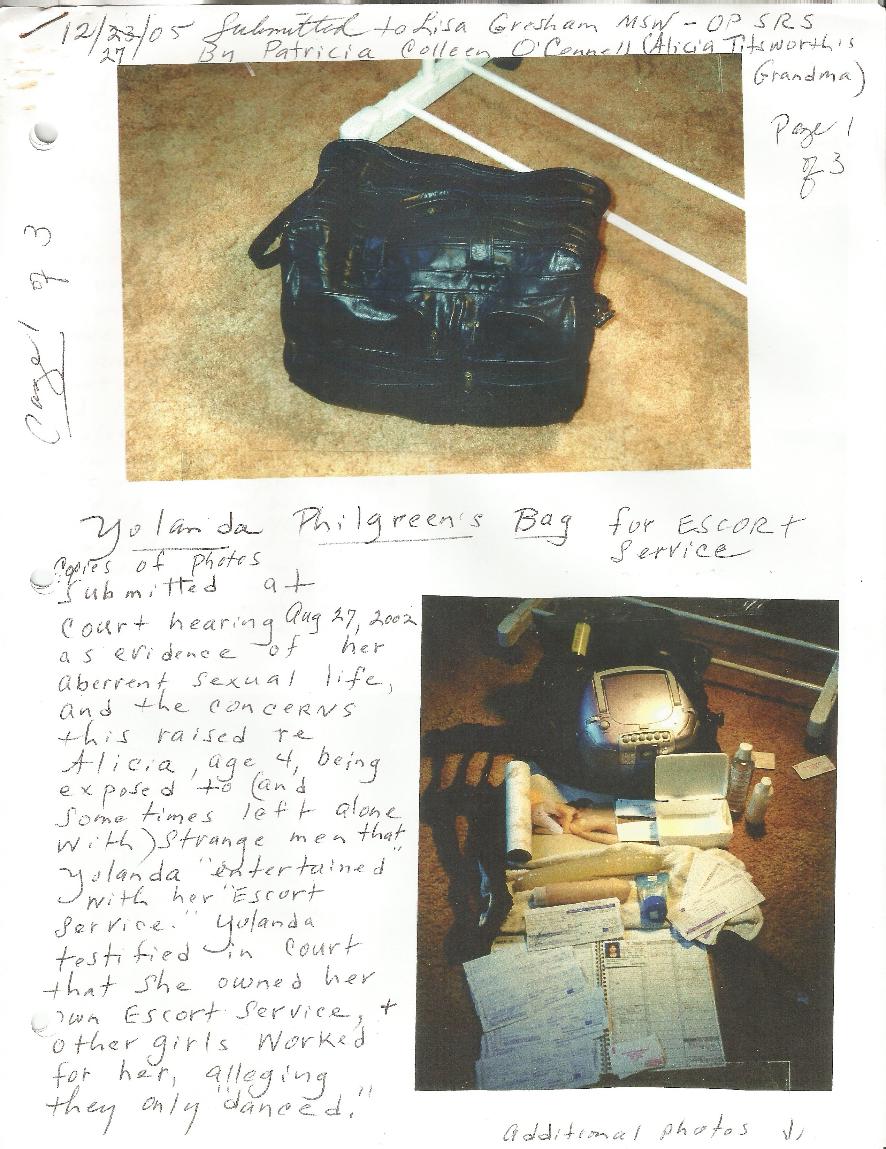 12/23/05 Submitted to Lisa Gresham MSW - OP SRS
27 By Patricia Colleen O'Connell (Alicia Titsworth's
Grandma)
Page 1
of 3
Page 1 of 3
Yolanda Philgreen's Bag for ESCORT
Service
Copies of photos
submitted at
Court hearing Aug 27, 2002
as evidence of her
aberrent sexual life,
and the concerns
this raised re
Alicia, age 4, being
exposed to (and
some times left alone
with) strange men that
Yolanda "entertained"
with her "Escort
Service." Yolanda
testified in Court
that she owned her
own Escort Service, +
other girls worked
for her, alleging
they only "danced."
Additional photos ↓